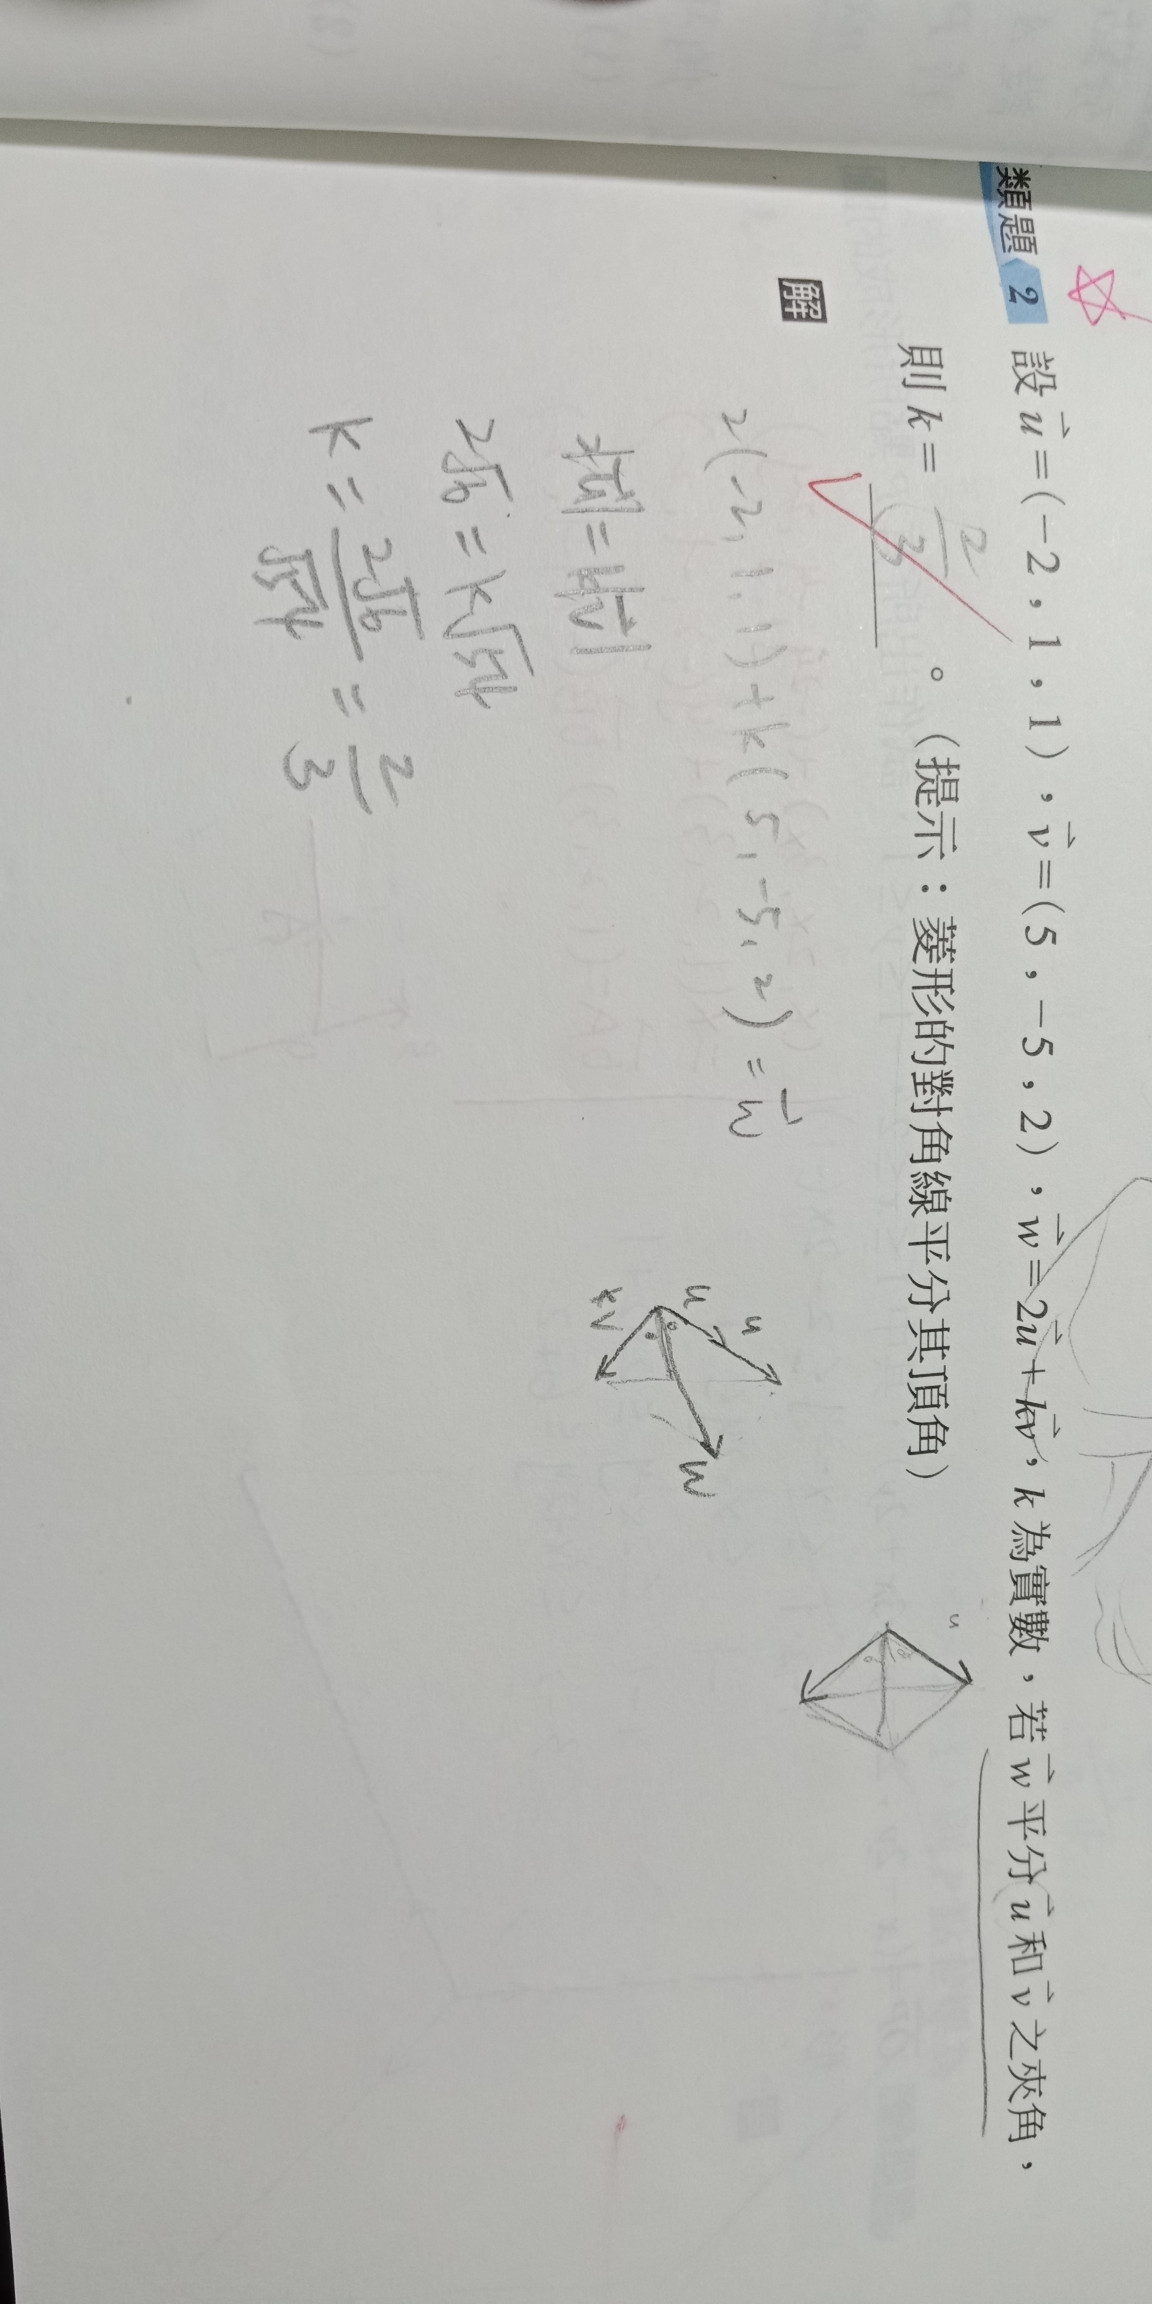 類題 2 設 u⃗=(-2,1,1),v⃗=(5,-5,2),w⃗=2u⃗+kv⃗,k 為實數,若 w⃗ 平分 u⃗ 和 v⃗ 之夾角,
則 k= 2/3 。(提示:菱形的對角線平分其頂角)
u
解
2(-2,1,1)+k(5,-5,2)=w⃗
u
u
kv
w
2|u⃗|=k|v⃗|
2√6=k√54
k=2√6/√54=2/3